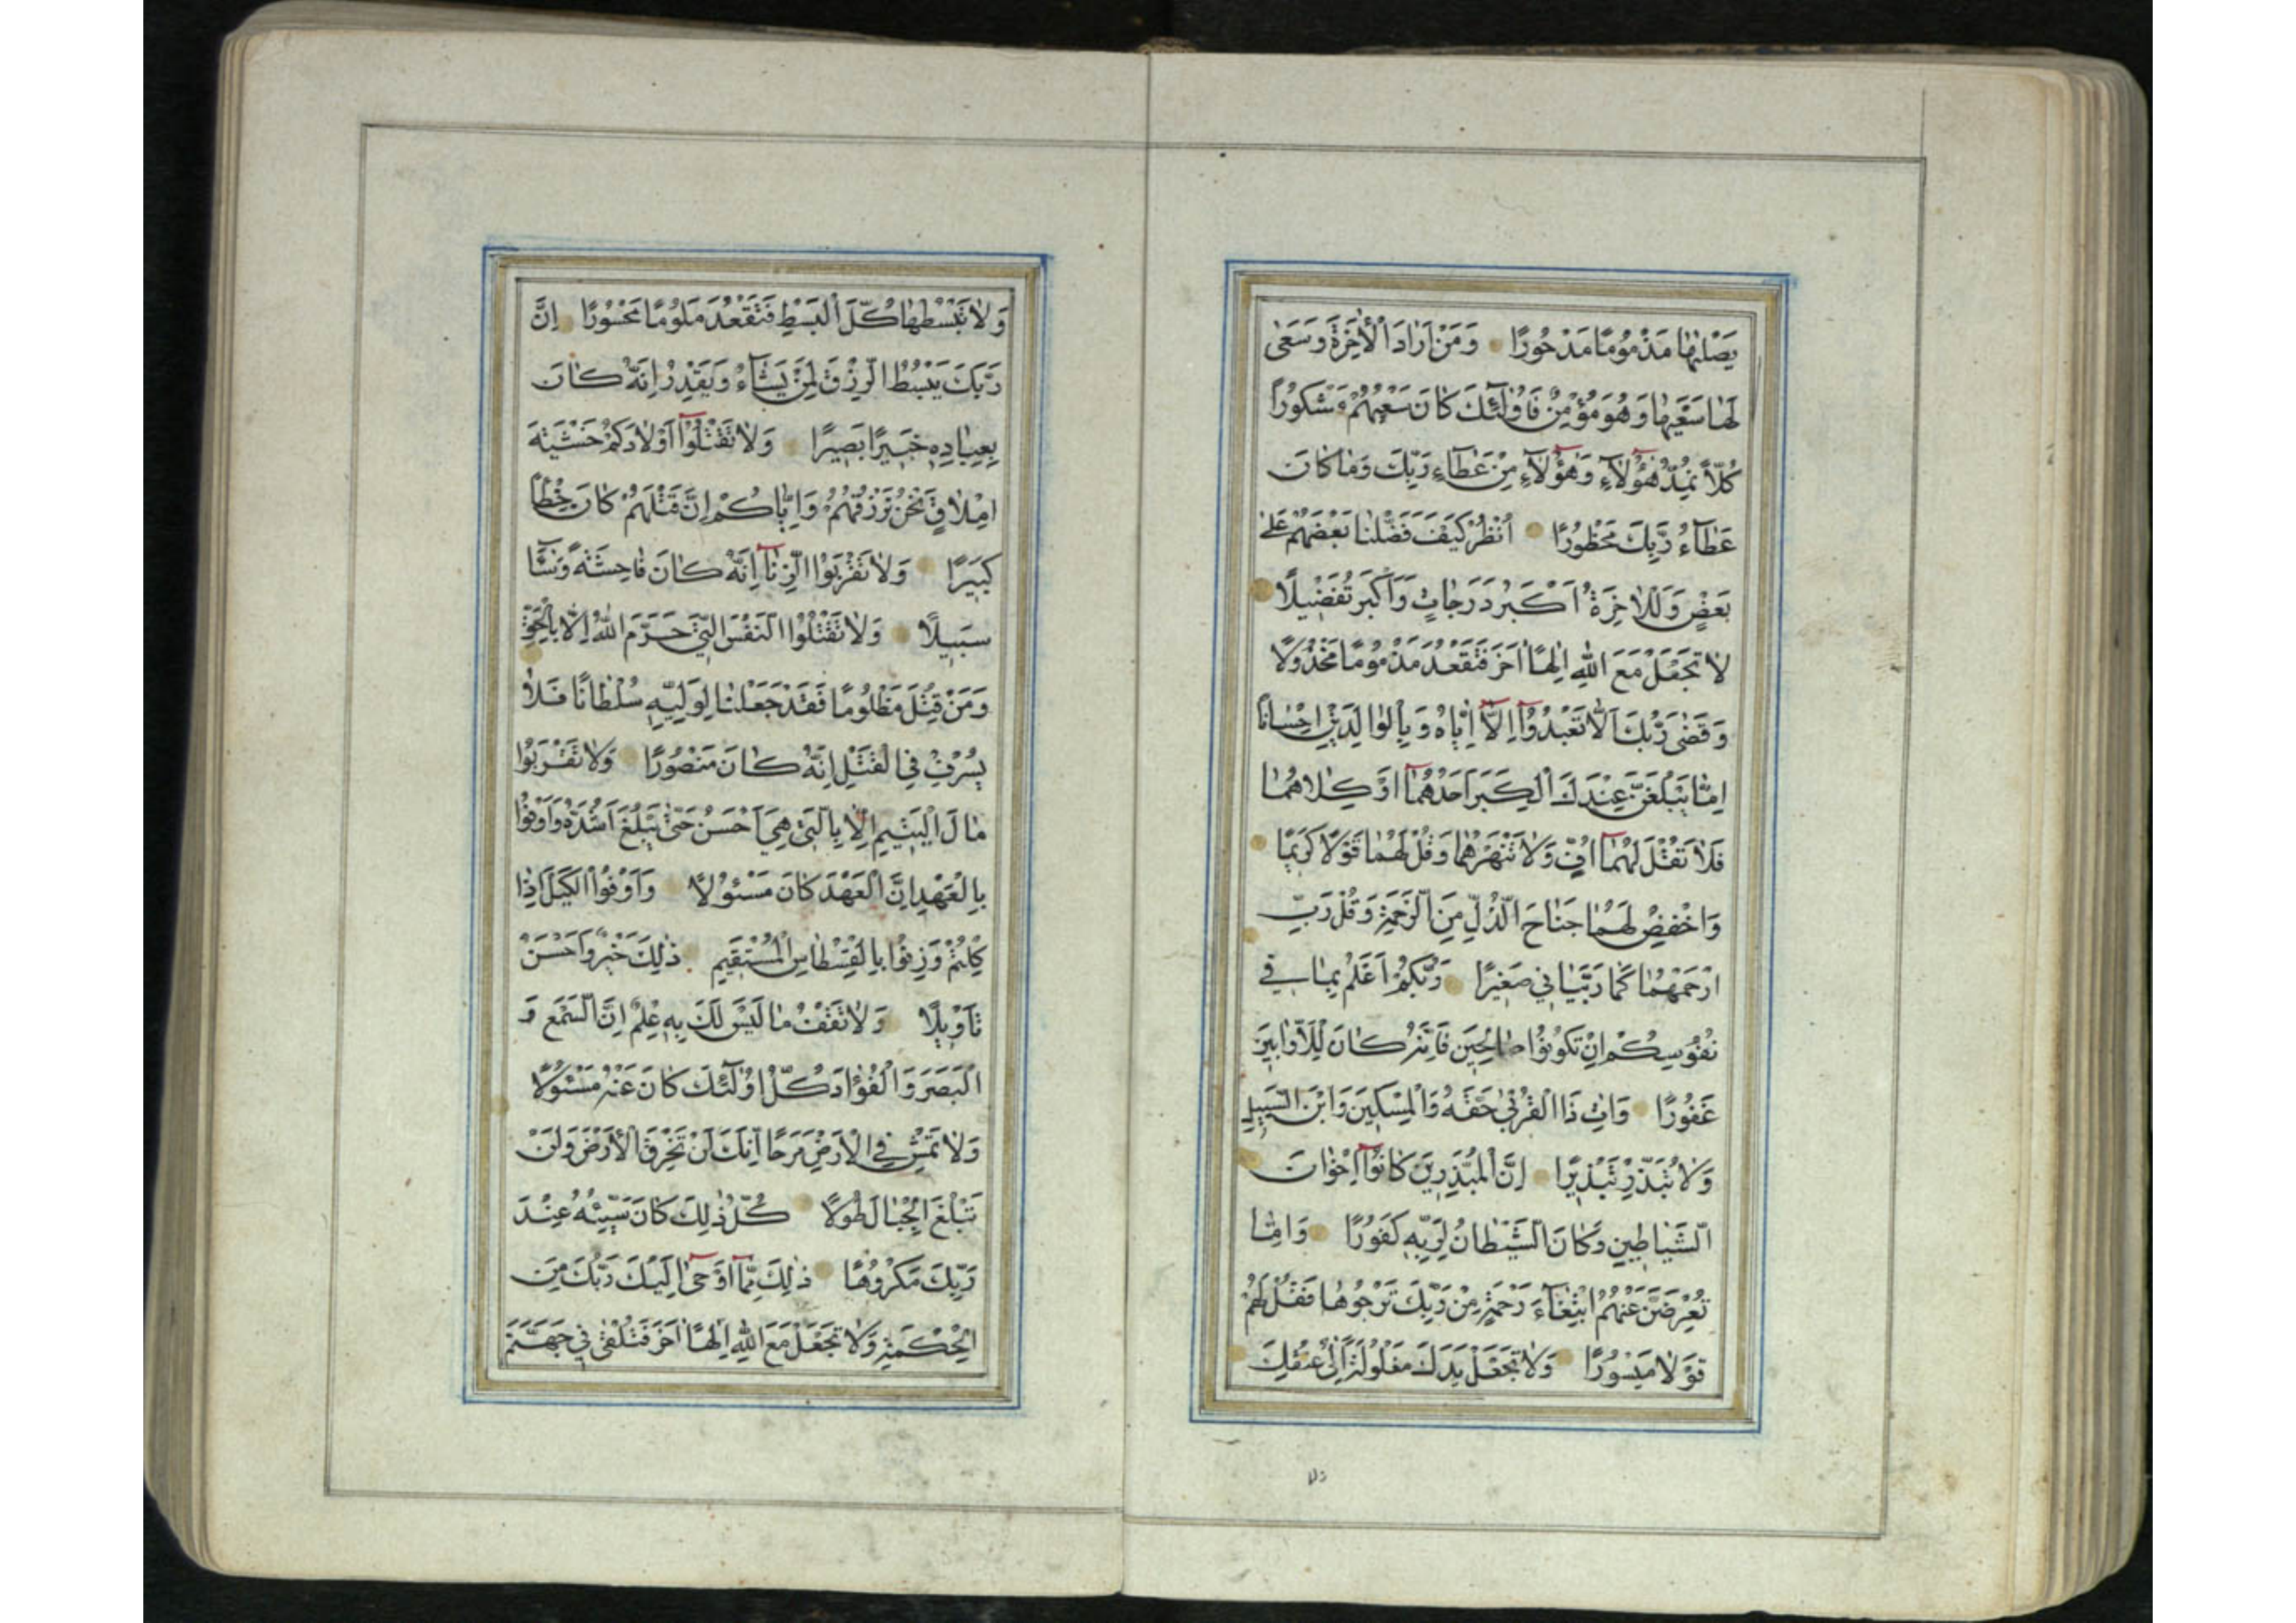 يَصْلٰيهَا مَذْمُومًا مَدْحُورًا وَمَنْ اَرَادَ الْاٰخِرَةَ وَسَعٰى
لَهَا سَعْيَهَا وَهُوَ مُؤْمِنٌ فَاُولٰٓئِكَ كَانَ سَعْيُهُمْ مَشْكُورًا
كُلًّا نُمِدُّ هٰٓؤُلَآءِ وَهٰٓؤُلَآءِ مِنْ عَطَآءِ رَبِّكَ وَمَا كَانَ
عَطَآءُ رَبِّكَ مَحْظُورًا اُنْظُرْ كَيْفَ فَضَّلْنَا بَعْضَهُمْ عَلٰى
بَعْضٍ وَلَلْاٰخِرَةُ اَكْبَرُ دَرَجَاتٍ وَاَكْبَرُ تَفْضِيلًا
لَا تَجْعَلْ مَعَ اللّٰهِ اِلٰهًا اٰخَرَ فَتَقْعُدَ مَذْمُومًا مَخْذُولًا
وَقَضٰى رَبُّكَ اَلَّا تَعْبُدُوٓا اِلَّٓا اِيَّاهُ وَبِالْوَالِدَيْنِ اِحْسَانًا
اِمَّا يَبْلُغَنَّ عِنْدَكَ الْكِبَرَ اَحَدُهُمَٓا اَوْ كِلَاهُمَا
فَلَا تَقُلْ لَهُمَٓا اُفٍّ وَلَا تَنْهَرْهُمَا وَقُلْ لَهُمَا قَوْلًا كَرِيمًا
وَاخْفِضْ لَهُمَا جَنَاحَ الذُّلِّ مِنَ الرَّحْمَةِ وَقُلْ رَبِّ
ارْحَمْهُمَا كَمَا رَبَّيَانِي صَغِيرًا رَبُّكُمْ اَعْلَمُ بِمَا فِي
نُفُوسِكُمْ اِنْ تَكُونُوا صَالِحِينَ فَاِنَّهُ كَانَ لِلْاَوَّابِينَ
غَفُورًا وَاٰتِ ذَا الْقُرْبٰى حَقَّهُ وَالْمِسْكِينَ وَابْنَ السَّبِيلِ
وَلَا تُبَذِّرْ تَبْذِيرًا اِنَّ الْمُبَذِّرِينَ كَانُوٓا اِخْوَانَ
الشَّيَاطِينِ وَكَانَ الشَّيْطَانُ لِرَبِّهِ كَفُورًا وَاِمَّا
تُعْرِضَنَّ عَنْهُمُ ابْتِغَآءَ رَحْمَةٍ مِنْ رَبِّكَ تَرْجُوهَا فَقُلْ لَهُمْ
قَوْلًا مَيْسُورًا وَلَا تَجْعَلْ يَدَكَ مَغْلُولَةً اِلٰى عُنُقِكَ
ولا
وَلَا تَبْسُطْهَا كُلَّ الْبَسْطِ فَتَقْعُدَ مَلُومًا مَحْسُورًا اِنَّ
رَبَّكَ يَبْسُطُ الرِّزْقَ لِمَنْ يَشَآءُ وَيَقْدِرُ اِنَّهُ كَانَ
بِعِبَادِهِ خَبِيرًا بَصِيرًا وَلَا تَقْتُلُوٓا اَوْلَادَكُمْ خَشْيَةَ
اِمْلَاقٍ نَحْنُ نَرْزُقُهُمْ وَاِيَّاكُمْ اِنَّ قَتْلَهُمْ كَانَ خِطْأً
كَبِيرًا وَلَا تَقْرَبُوا الزِّنَٓا اِنَّهُ كَانَ فَاحِشَةً وَسَآءَ
سَبِيلًا وَلَا تَقْتُلُوا النَّفْسَ الَّتِي حَرَّمَ اللّٰهُ اِلَّا بِالْحَقِّ
وَمَنْ قُتِلَ مَظْلُومًا فَقَدْ جَعَلْنَا لِوَلِيِّهِ سُلْطَانًا فَلَا
يُسْرِفْ فِي الْقَتْلِ اِنَّهُ كَانَ مَنْصُورًا وَلَا تَقْرَبُوا
مَالَ الْيَتِيمِ اِلَّا بِالَّتِي هِيَ اَحْسَنُ حَتّٰى يَبْلُغَ اَشُدَّهُ وَاَوْفُوا
بِالْعَهْدِ اِنَّ الْعَهْدَ كَانَ مَسْئُولًا وَاَوْفُوا الْكَيْلَ اِذَا
كِلْتُمْ وَزِنُوا بِالْقِسْطَاسِ الْمُسْتَقِيمِ ذٰلِكَ خَيْرٌ وَاَحْسَنُ
تَأْوِيلًا وَلَا تَقْفُ مَا لَيْسَ لَكَ بِهِ عِلْمٌ اِنَّ السَّمْعَ وَ
الْبَصَرَ وَالْفُؤَادَ كُلُّ اُولٰٓئِكَ كَانَ عَنْهُ مَسْئُولًا
وَلَا تَمْشِ فِي الْاَرْضِ مَرَحًا اِنَّكَ لَنْ تَخْرِقَ الْاَرْضَ وَلَنْ
تَبْلُغَ الْجِبَالَ طُولًا كُلُّ ذٰلِكَ كَانَ سَيِّئُهُ عِنْدَ
رَبِّكَ مَكْرُوهًا ذٰلِكَ مِمَّٓا اَوْحٰٓى اِلَيْكَ رَبُّكَ مِنَ
الْحِكْمَةِ وَلَا تَجْعَلْ مَعَ اللّٰهِ اِلٰهًا اٰخَرَ فَتُلْقٰى فِي جَهَنَّمَ